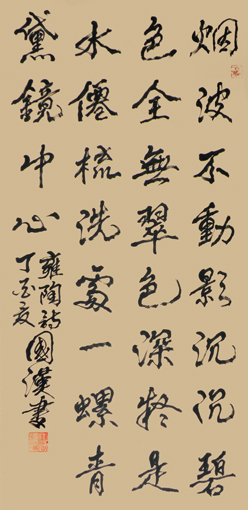 烟波不動影沉沉碧
色全無翠色深疑是
水僊梳洗處一螺青
黛鏡中心
雍陶詩國漢書
丁酉夏